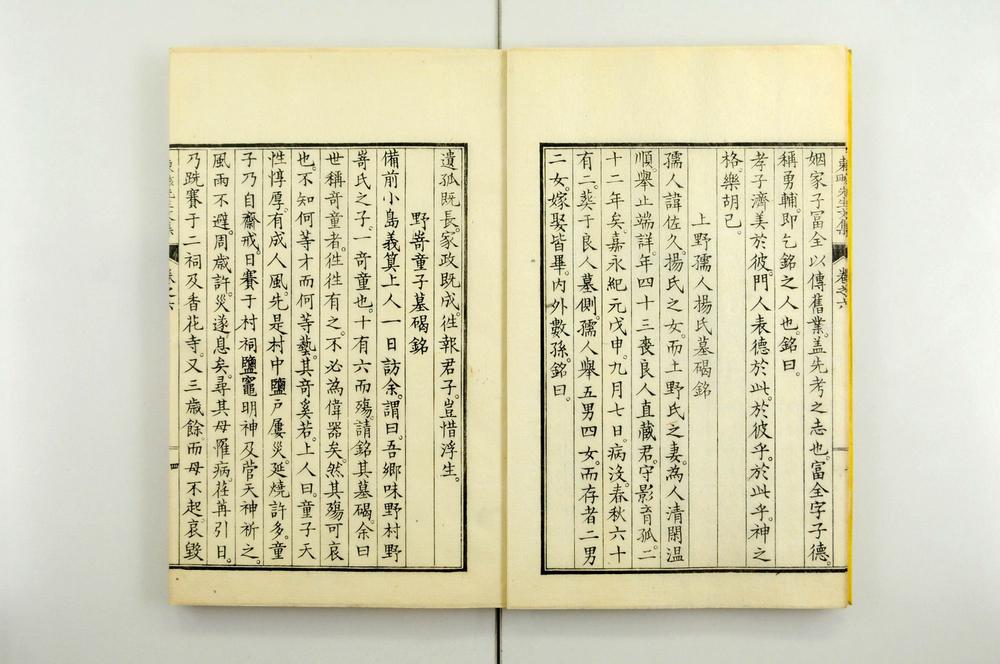 姻家子冨全以傳舊業。盖先考之志也。冨全字子德。
稱勇輔。即乞銘之人也。銘曰。
孝子濟美於彼。門人表德於此。於彼乎。於此乎。神之
格樂胡已。
上野孺人楊氏墓碣銘
孺人諱佐久。楊氏之女。而上野氏之妻。為人清閑温
順。舉止端詳。年四十三喪良人直蔵君。守影育孤。二
十二年矣。嘉永紀元戊申。九月七日。病沒。春秋六十
有二。葵于良人墓側。孺人舉五男四女。而存者二男
二女。嫁娶皆畢。內外數孫。銘曰。
遺孤既長。家政既成。徃報君子。豈惜浮生。
野嵜童子墓碣銘
備前小島義算上人一日訪余。謂曰。吾鄉味野村野
嵜氏之子。一奇童也。十有六而殤。請銘其墓碣。余曰
世稱奇童者。徃徃有之。不必為偉器矣。然其殤可哀
也。不知何等才而何等藝。其奇奚若。上人曰。童子天
性惇厚。有成人風。先是村中鹽戶屢災。延燒許多。童
子乃自齋戒。日賽于村祠鹽竈明神及菅天神祈之。
風雨不避。周歲許。災遂息矣。尋其母罹病。荏苒引日。
乃跣賽于二祠及香花寺。又三歲餘。而母不起。哀毀
卷之六
四